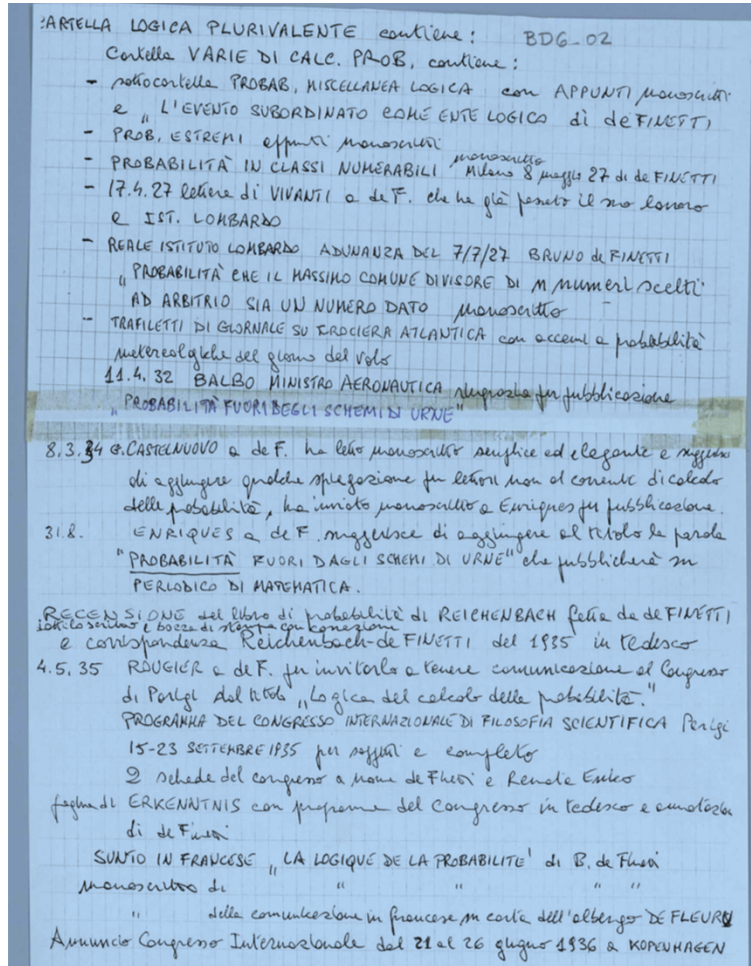 CARTELLA LOGICA PLURIVALENTE contiene: BDG-02
Cartella VARIE DI CALC. PROB, contiene:
- sottocartella PROBAB, MISCELLANEA LOGICA con APPUNTI manoscritti
e „L'EVENTO SUBORDINATO COME ENTE LOGICO di deFINETTI
- PROB, ESTREMI appunti manoscritti
- PROBABILITÀ IN CLASSI NUMERABILI manoscritto Milano 8 maggio 27 di deFINETTI
- 17.4.27 lettere di VIVANTI a de F. che ha già passato il suo lavoro
a IST. LOMBARDO
- REALE ISTITUTO LOMBARDO ADUNANZA DEL 7/7/27 BRUNO deFINETTI
„PROBABILITÀ CHE IL MASSIMO COMUNE DIVISORE DI n numeri scelti
AD ARBITRIO SIA UN NUMERO DATO manoscritto
- TRAFILETTI DI GIORNALE SU CROCIERA ATLANTICA con accenni a probabilità
metereologiche del giorno del volo
11.4.32 BALBO MINISTRO AERONAUTICA ringrazia per pubblicazione
„PROBABILITÀ FUORI DEGLI SCHEMI DI URNE"
8.3.34 G.CASTELNUOVO a de F. ha letto manoscritto semplice ed elegante e suggerisce
di aggiungere qualche spiegazione per lettori non al corrente di calcolo
delle probabilità, ha inviato manoscritto a Enriques per pubblicazione.
31.8. ENRIQUES a de F. suggerisce di aggiungere al titolo la parola
"PROBABILITÀ FUORI DAGLI SCHEMI DI URNE" che pubblicherà su
PERIODICO DI MATEMATICA.
RECENSIONE del libro di probabilità di REICHENBACH fatta da deFINETTI
dattiloscritto e bozza di stampa con correzioni
e corrispondenza Reichenbach-deFINETTI del 1935 in tedesco
4.5.35 ROUGIER a de F. per invitarlo a tenere comunicazione al Congresso
di Parigi dal titolo „Logica del calcolo delle probabilità."
PROGRAMMA DEL CONGRESSO INTERNAZIONALE DI FILOSOFIA SCIENTIFICA Parigi
15-23 SETTEMBRE 1935 per soggetti e completo
2 schede del congresso a nome de Finetti e Renata Errico
pagine di ERKENNTNIS con programma del Congresso in tedesco e annotazioni
di de Finetti
SUNTO IN FRANCESE „LA LOGIQUE DE LA PROBABILITE' di B. de Finetti
manoscritto di " " " "
" della comunicazione in francese su carta dell'albergo DE FLEURU
Annuncio Congresso Internazionale dal 21 al 26 giugno 1936 a KOPENHAGEN